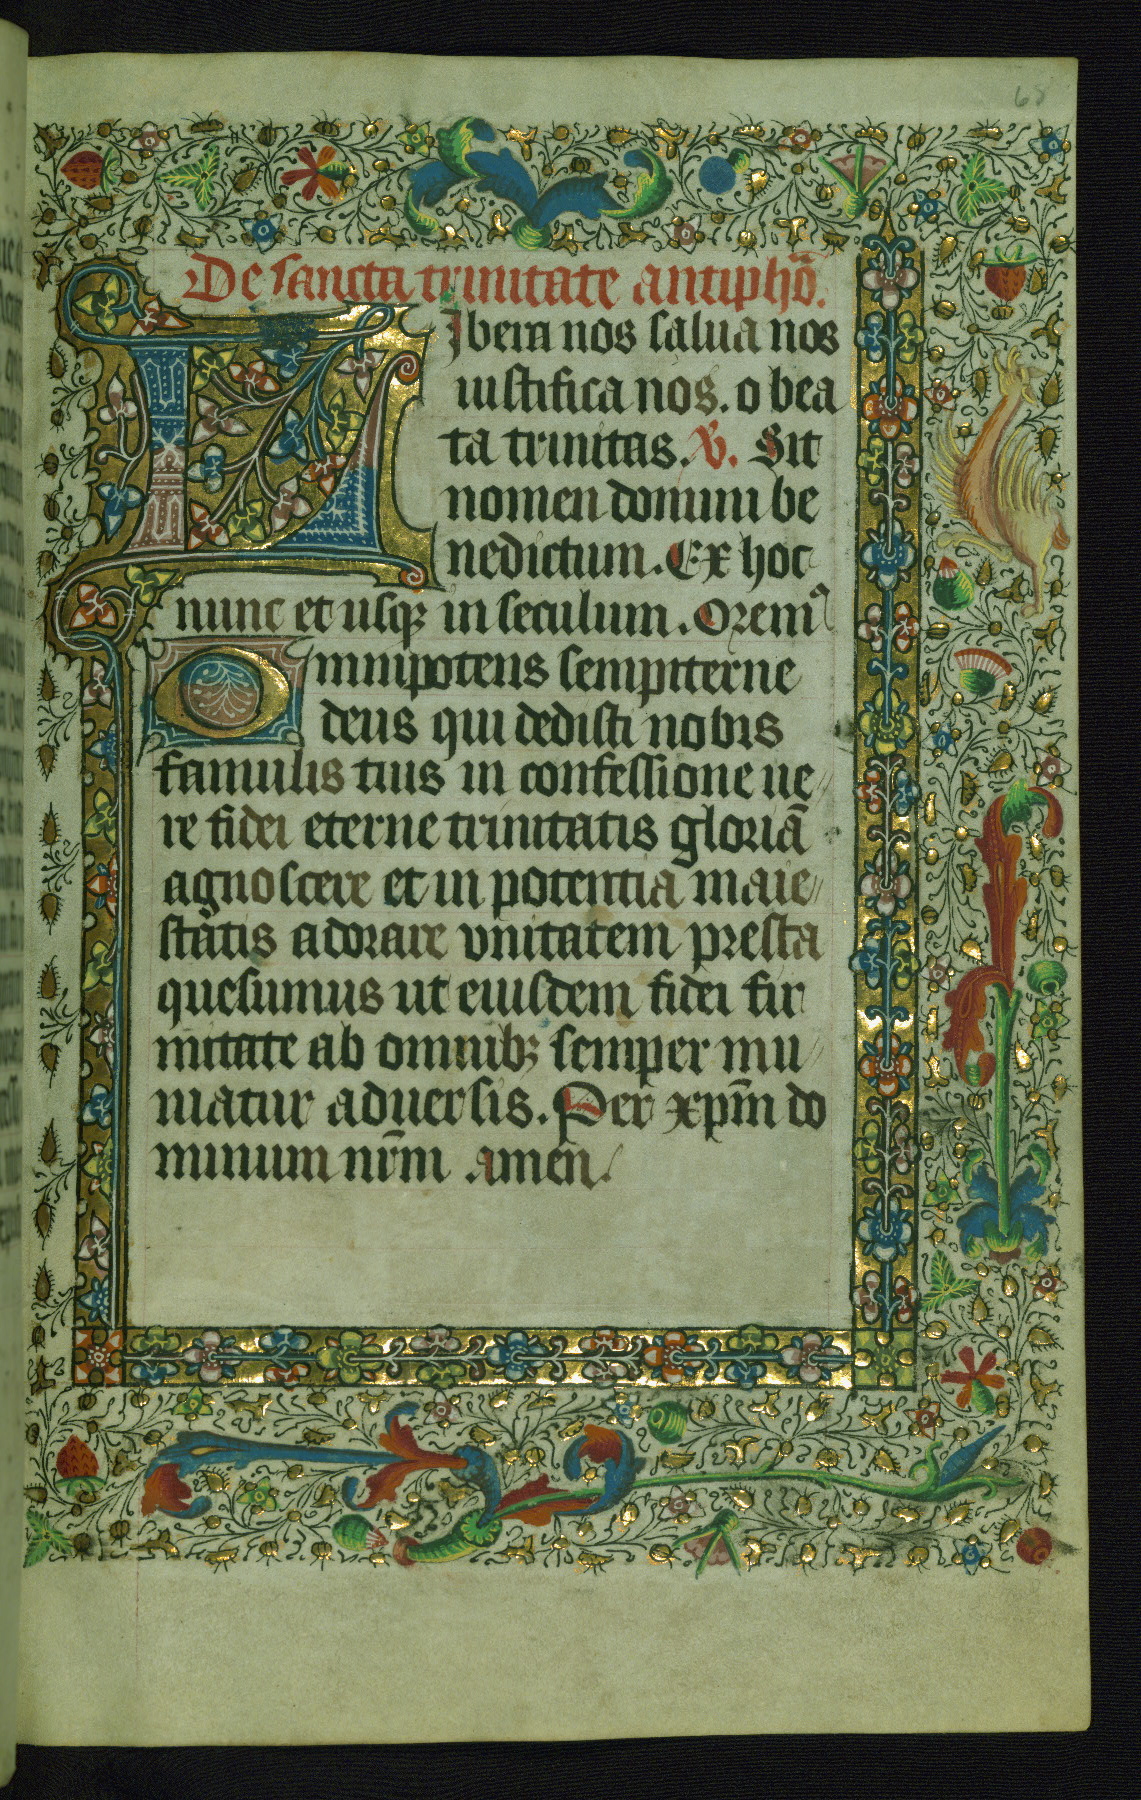 68
De sancta trinitate antiphō.
LIbera nos salua nos
iustifica nos. o bea
ta trinitas. V̄. Sit
nomen domini be
nedictum. Ex hoc
nunc et usqꝫ in seculum. Oremꝰ
Omnipotens sempiterne
deus qui dedisti nobis
famulis tuis in confessione ue⸗
re fidei eterne trinitatis gloriā
agnoscere et in potentia maie⸗
statis adorare vnitatem presta
quesumus ut eiusdem fidei fir
mitate ab omnibꝫ semper mu⸗
niatur aduersis. Per xp̄m do
minum nr̄m .amen.